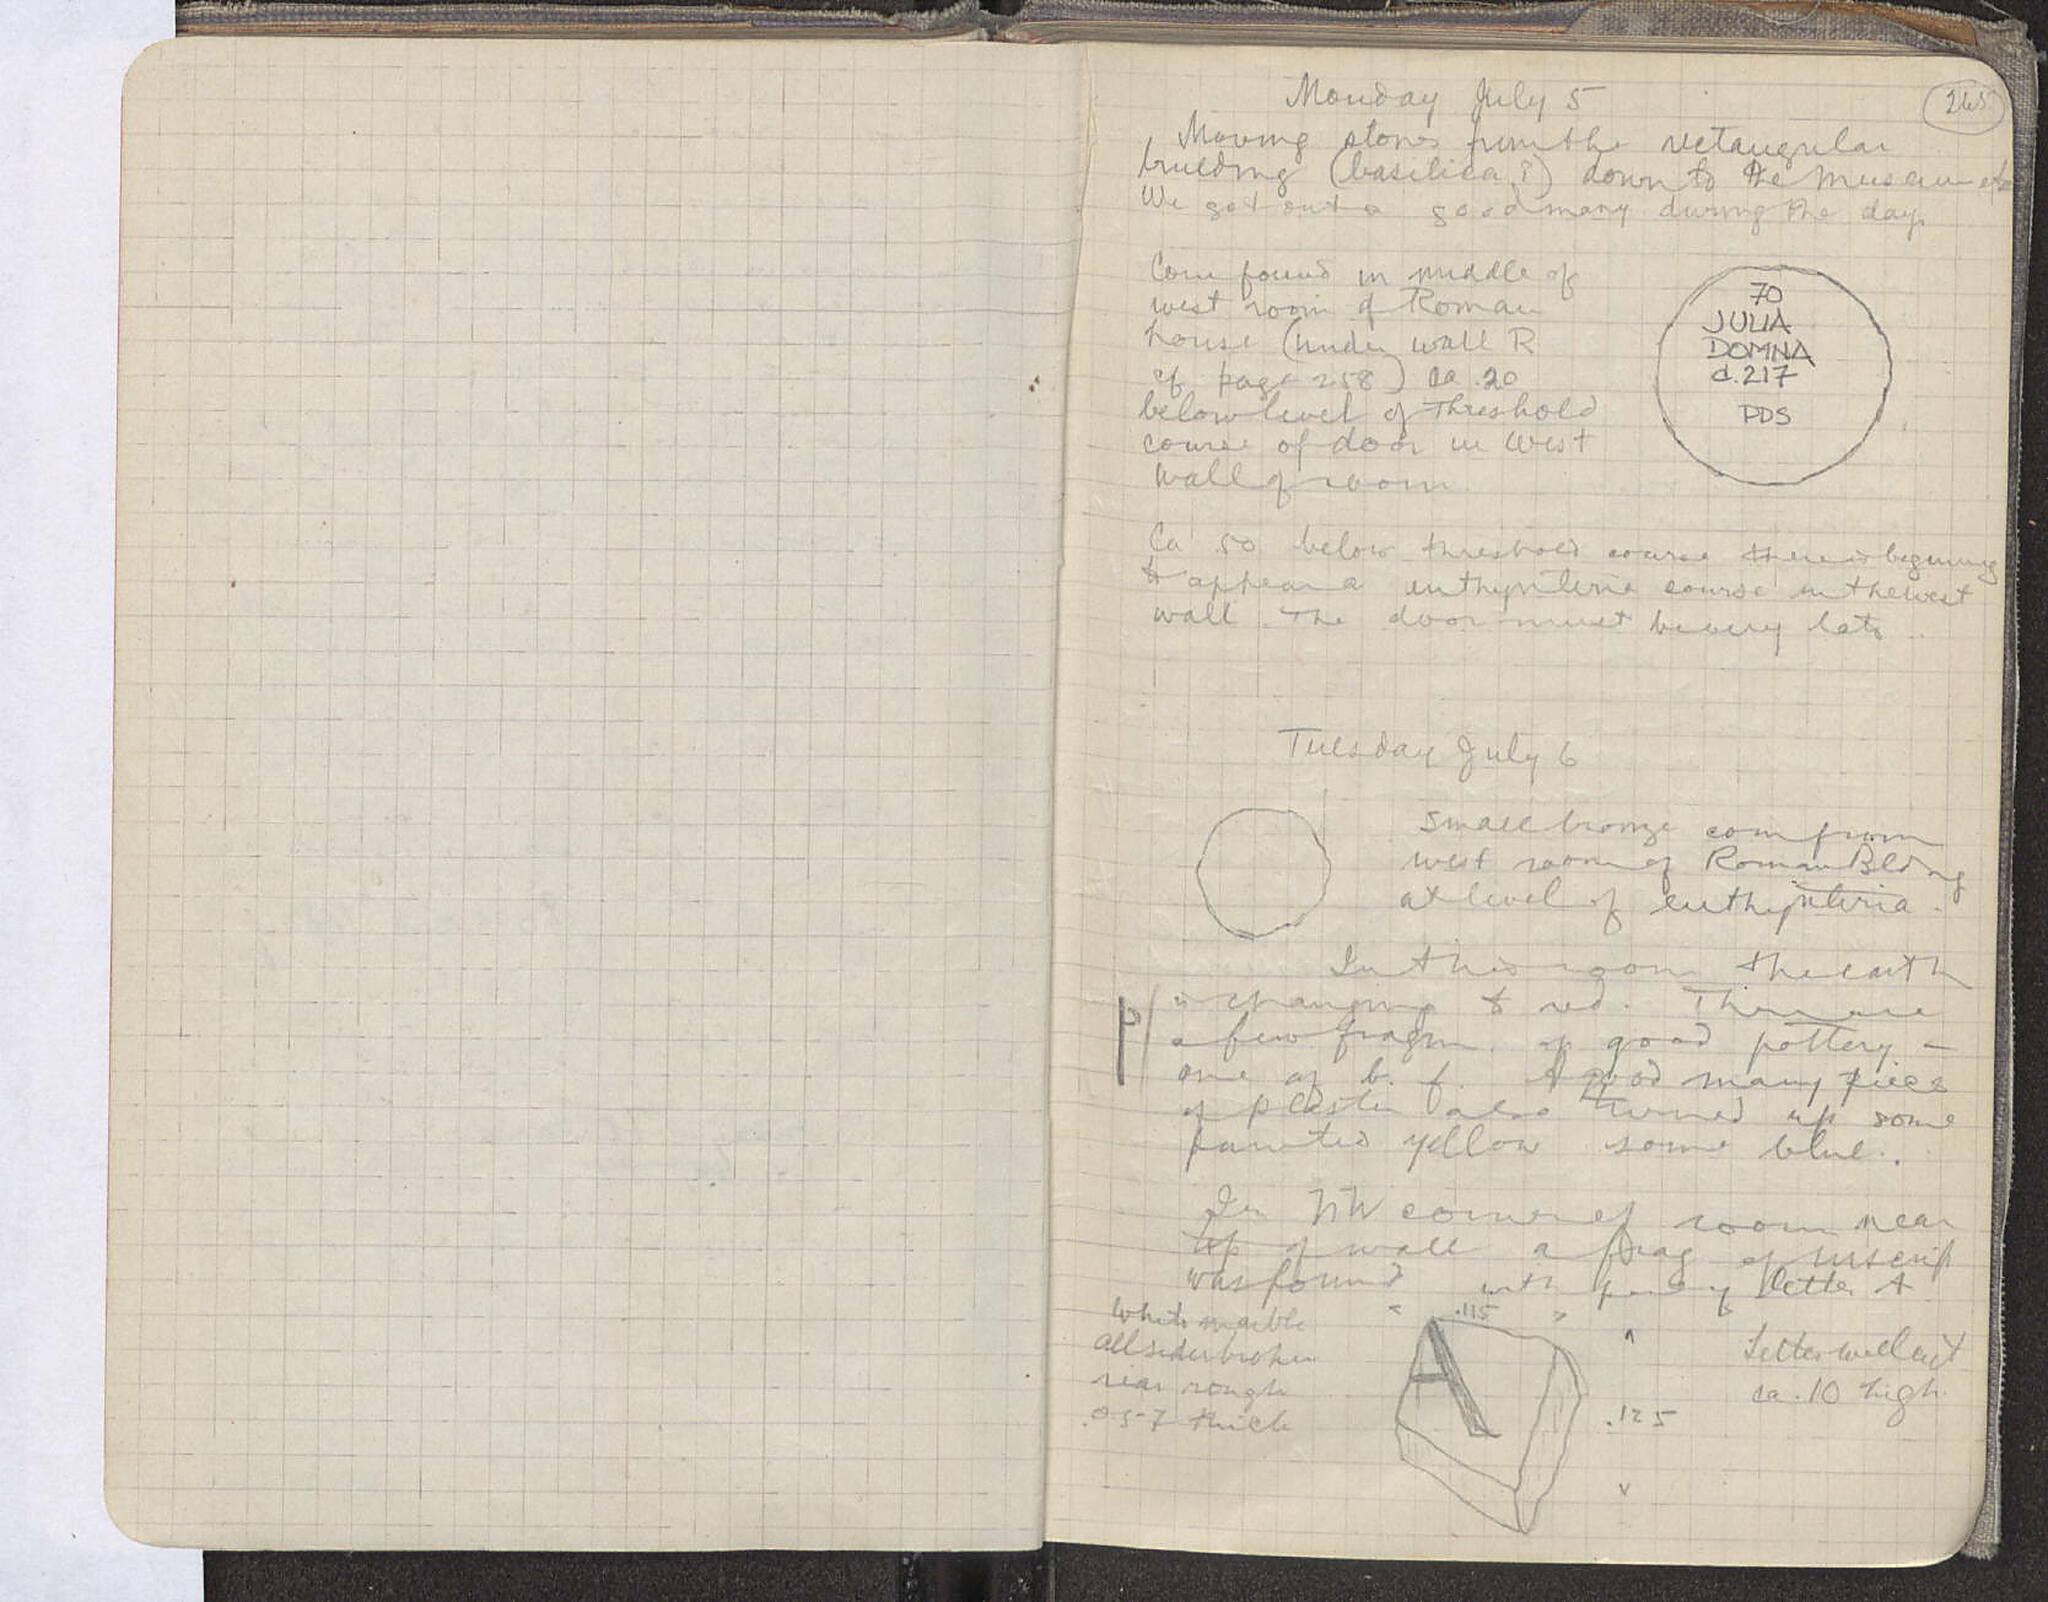 265
Monday July 5
Moving stones from the rectangular
building (basilica?) down to the museum etc
We got out a good many during the day.
Coin found in middle of
west room of Roman
house (under wall R
cf page 258) ca .20
below level of threshold
course of door in west
wall of room
70
JULIA
DOMNA
d.217
PDS
Ca .50 below threshold course there is beginning
to appear a euthynteria course in the west
wall. The door must be very late.
Tuesday July 6
Small bronze coin from
west room of Roman Bldng
at level of euthynteria.
In this room the earth
is changing to red. There are
P/
a few fragm. of good pottery –
one of b. f. A good many piece
of plaster also turned up some
painted yellow some blue.
In NW corner of room near
top of wall a frag of inscrip
was found with part of letter A
White marble
All sides broken
rear rough
.057 thick
< .115 >
A
^
.125
v
Letter well cut
ca .10 high.